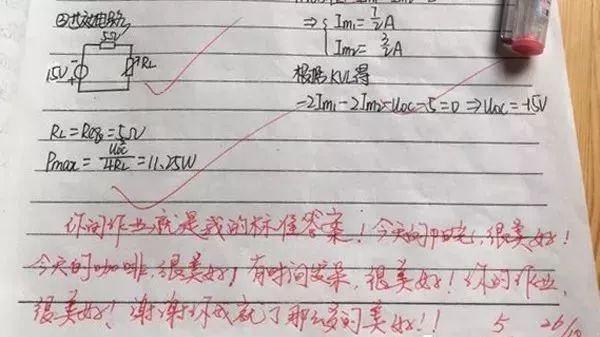 5Ω
15V
RL
⇒ { Im1 = 7/2 A
Im2 = 3/2 A
根据KVL得
-2Im1-2Im2-Uoc-5=0 ⇒ Uoc=-15V
RL=Req=5Ω
Pmax = Uoc²/4RL = 11.25W
你的作业就是我的标准答案！今天的阳光，很美好！
今天的咖啡，很美好！有时间发呆，很美好！你的作业，
很美好！谢谢你成就了那么多的美好！！
5 26/10